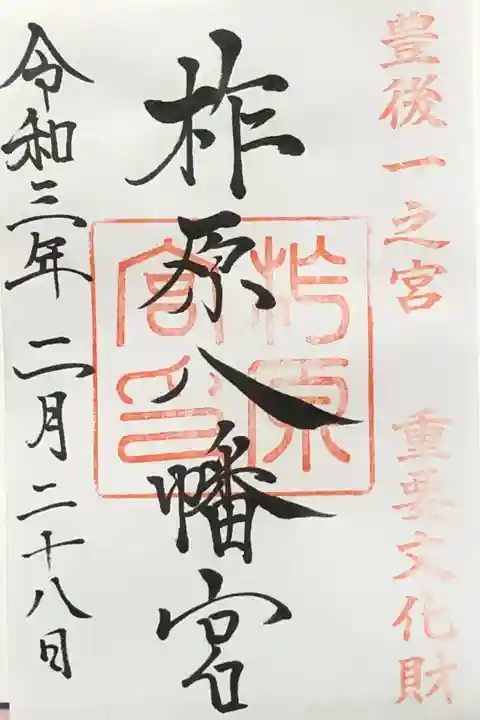 豊後一之宮 重要文化財
柞原八幡宮
柞原
宮印
令和三年二月二十八日